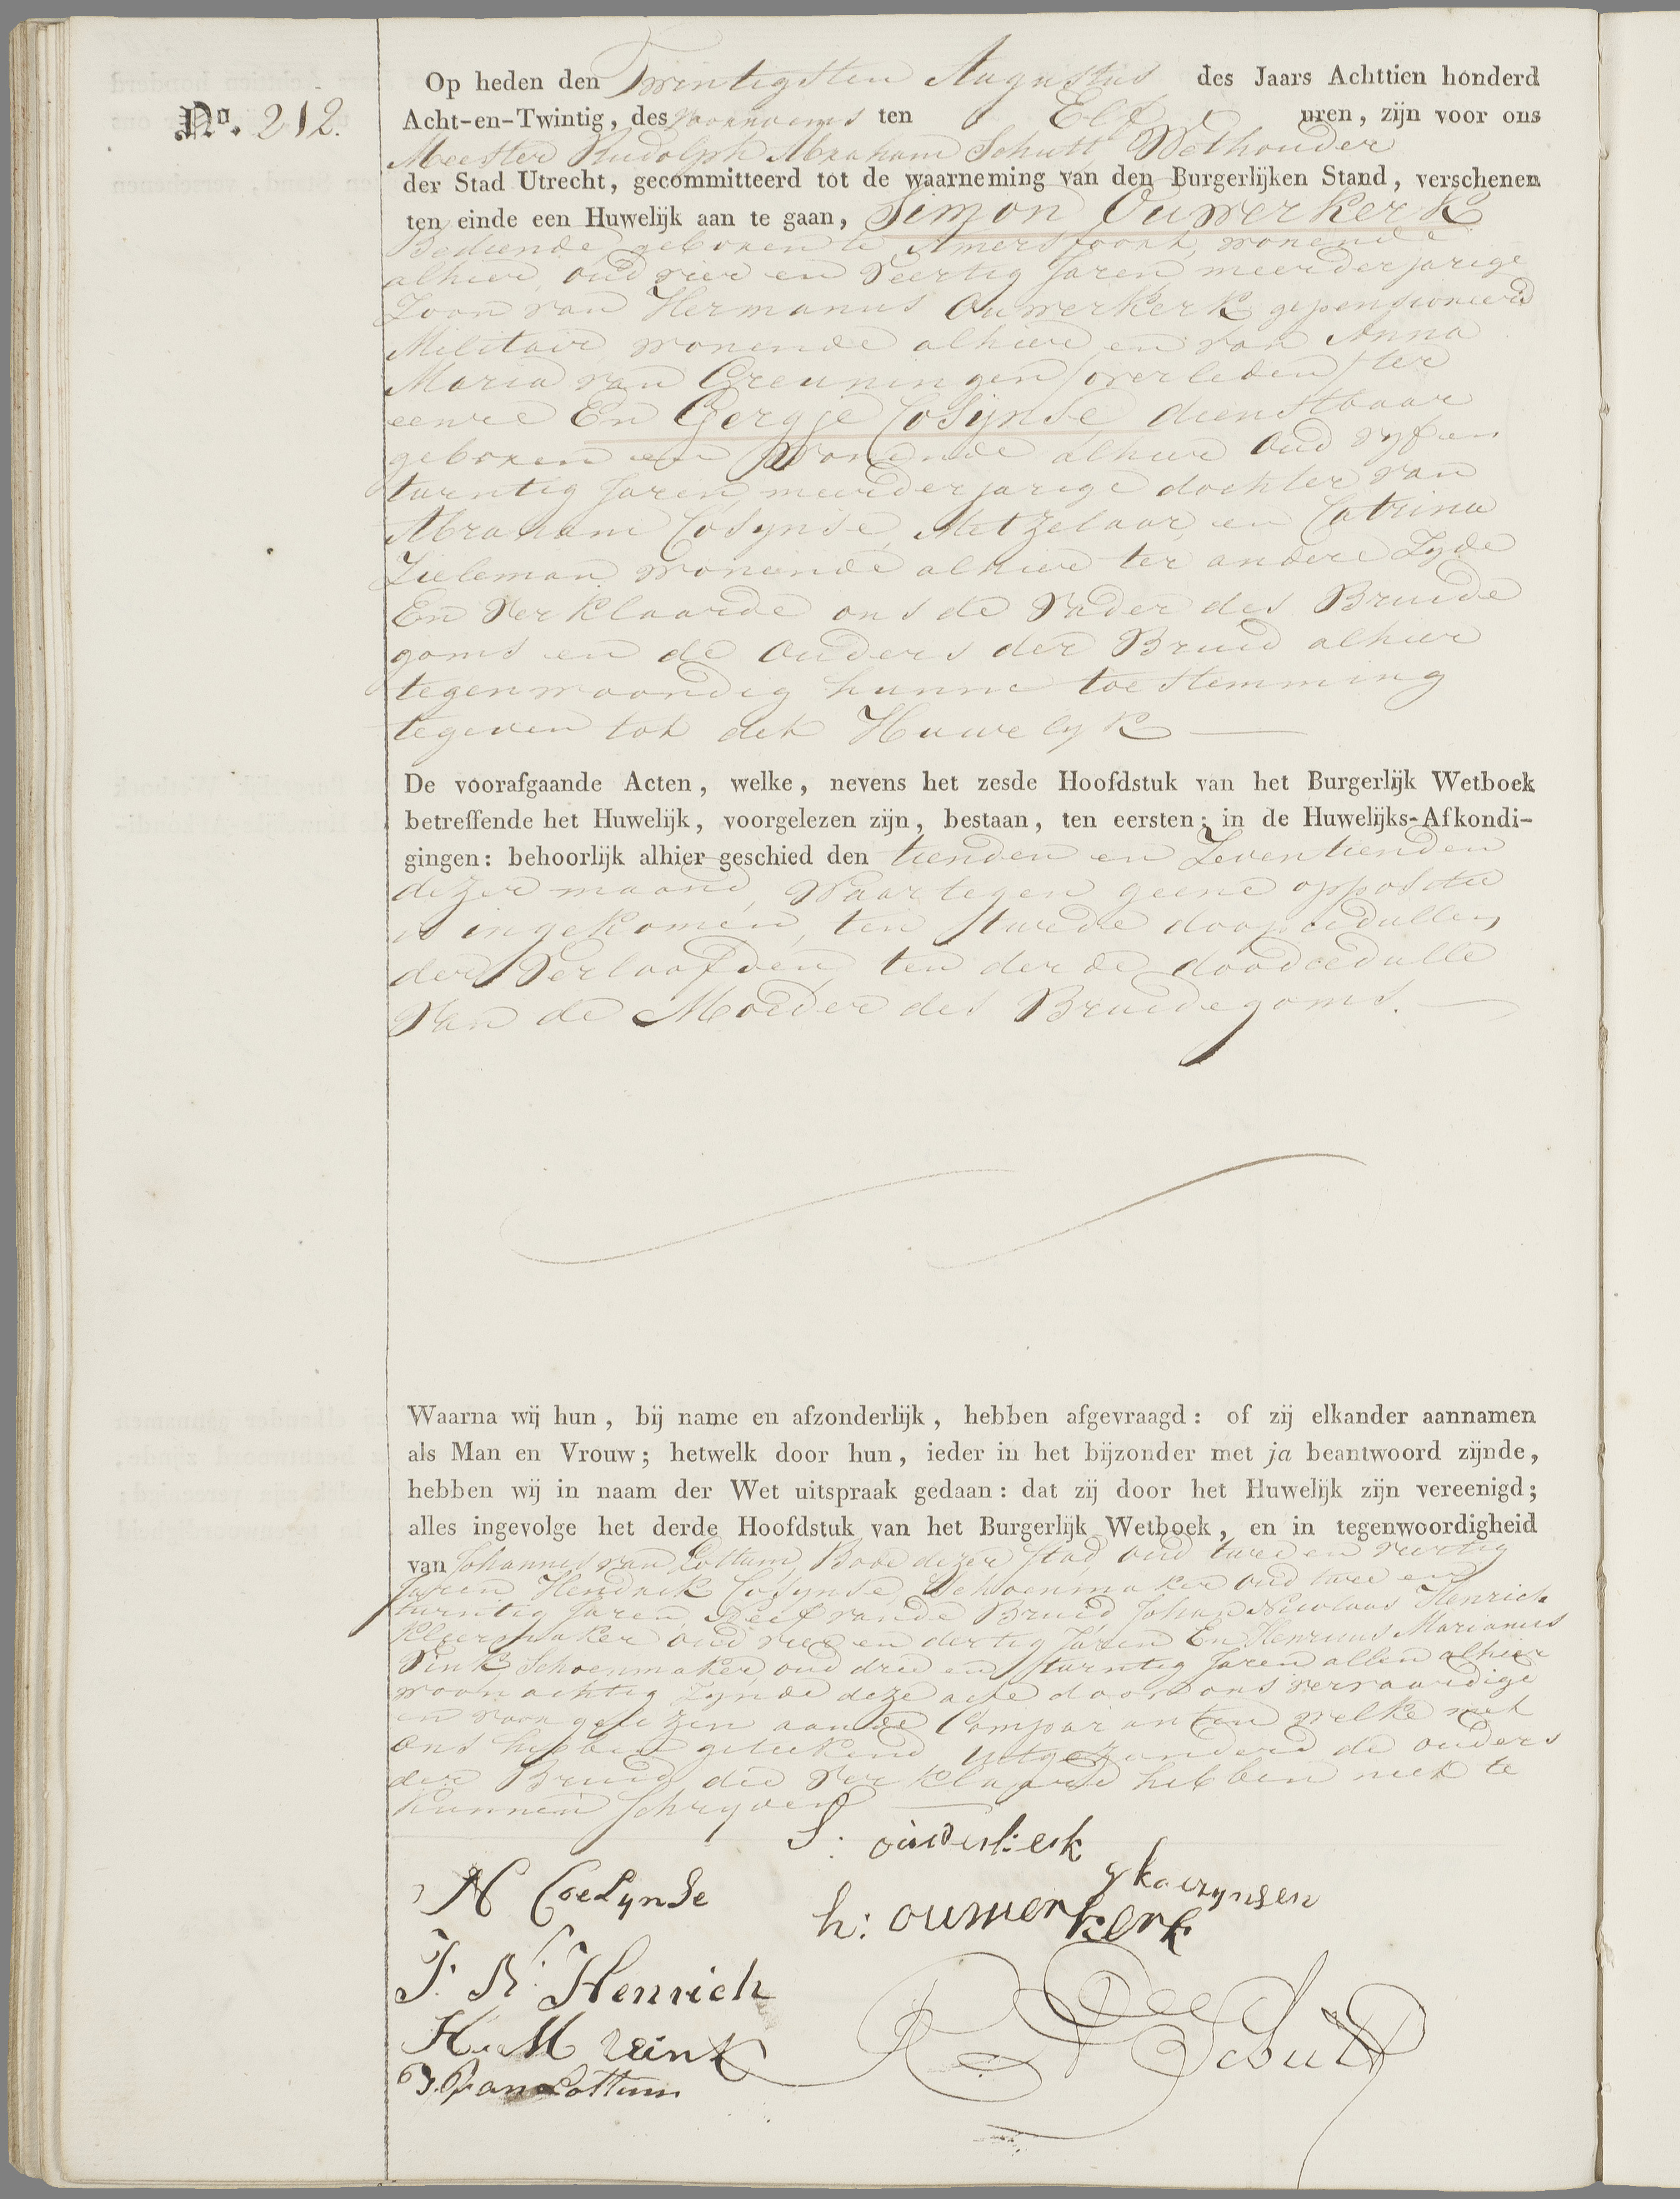 Op heden den Twintigsten Augustus des Jaars Achttien honderd
No. 212.
Acht-en-Twintig, des voornoens ten Elf uren, zijn voor ons
Meester Rudolph Abraham Schutt Wethouder
der Stad Utrecht, gecommitteerd tot de waarneming van den Burgerlijken Stand, verschenen
ten einde een Huwelijk aan te gaan, Simon Ouwerkerk
Bediende geboren te Amersfoort, wonende
alhier, oud vier en veertig Jaren meerderjarige
Zoon van Hermanus Ouwerkerk gepensioneerd
Militair wonende alhier en van Anna
Maria van Greuningen overleden ter
eenre En Gergje Cosijnse dienstbaar
geboren en wonende alhier oud vyf en
twintig Jaren, meerderjarige dochter van
Abraham Cosynse, Metzelaar, en Catrina
Zieleman wonende alhier ter andere Zyde
En Verklaarde ons de Vader des Bruide
goms en de Ouders der Bruid alhier
tegenwoordig hunne toestemming
tegeven tot dit Huwelyk
De voorafgaande Acten, welke, nevens het zesde Hoofdstuk van het Burgerlijk Wetboek
betreffende het Huwelijk, voorgelezen zijn, bestaan, ten eersten; in de Huwelijks-Afkondi-
gingen: behoorlijk alhier geschied den tienden en Zeventienden
dezer maand, Waartegen geene oppositie
is ingekomen, ten tweede doopcedullen
der Verloofden, ten derde doodcedulle
Van de Moeder des Bruidegoms.
Waarna wij hun, bij name en afzonderlijk, hebben afgevraagd: of zij elkander aannamen
als Man en Vrouw; hetwelk door hun, ieder in het bijzonder met ja beantwoord zijnde,
hebben wij in naam der Wet uitspraak gedaan: dat zij door het Huwelijk zijn vereenigd;
alles ingevolge het derde Hoofdstuk van het Burgerlijk Wetboek, en in tegenwoordigheid
van Johannes van Lottum, Bode dezer stad, oud twee en veertig
Jaren Hendrik Cosynse, Schoenmaker oud twee en
twintig Jaren, Neef vande Bruid Johan Nicolaas Henrich
Kleermaker oud vier en dertig Jaren En Henricus Marianus
Vink Schoenmaker, oud drie en twintig Jaren allen alhier
woonachtig Zynde deze acte door ons vervaardigd
en voorgelezen aan de Comparanten welke met
ons hebben geteekend uitgezonderd de ouders
der Bruid die verklaard hebben niet te
kunnen schryven
S: ouwerkerk
g koezynsen
H Coesynse
h: ouwerkerk
J. N. Henrich
H. M Vink
J. van Lottum
R A Schutt